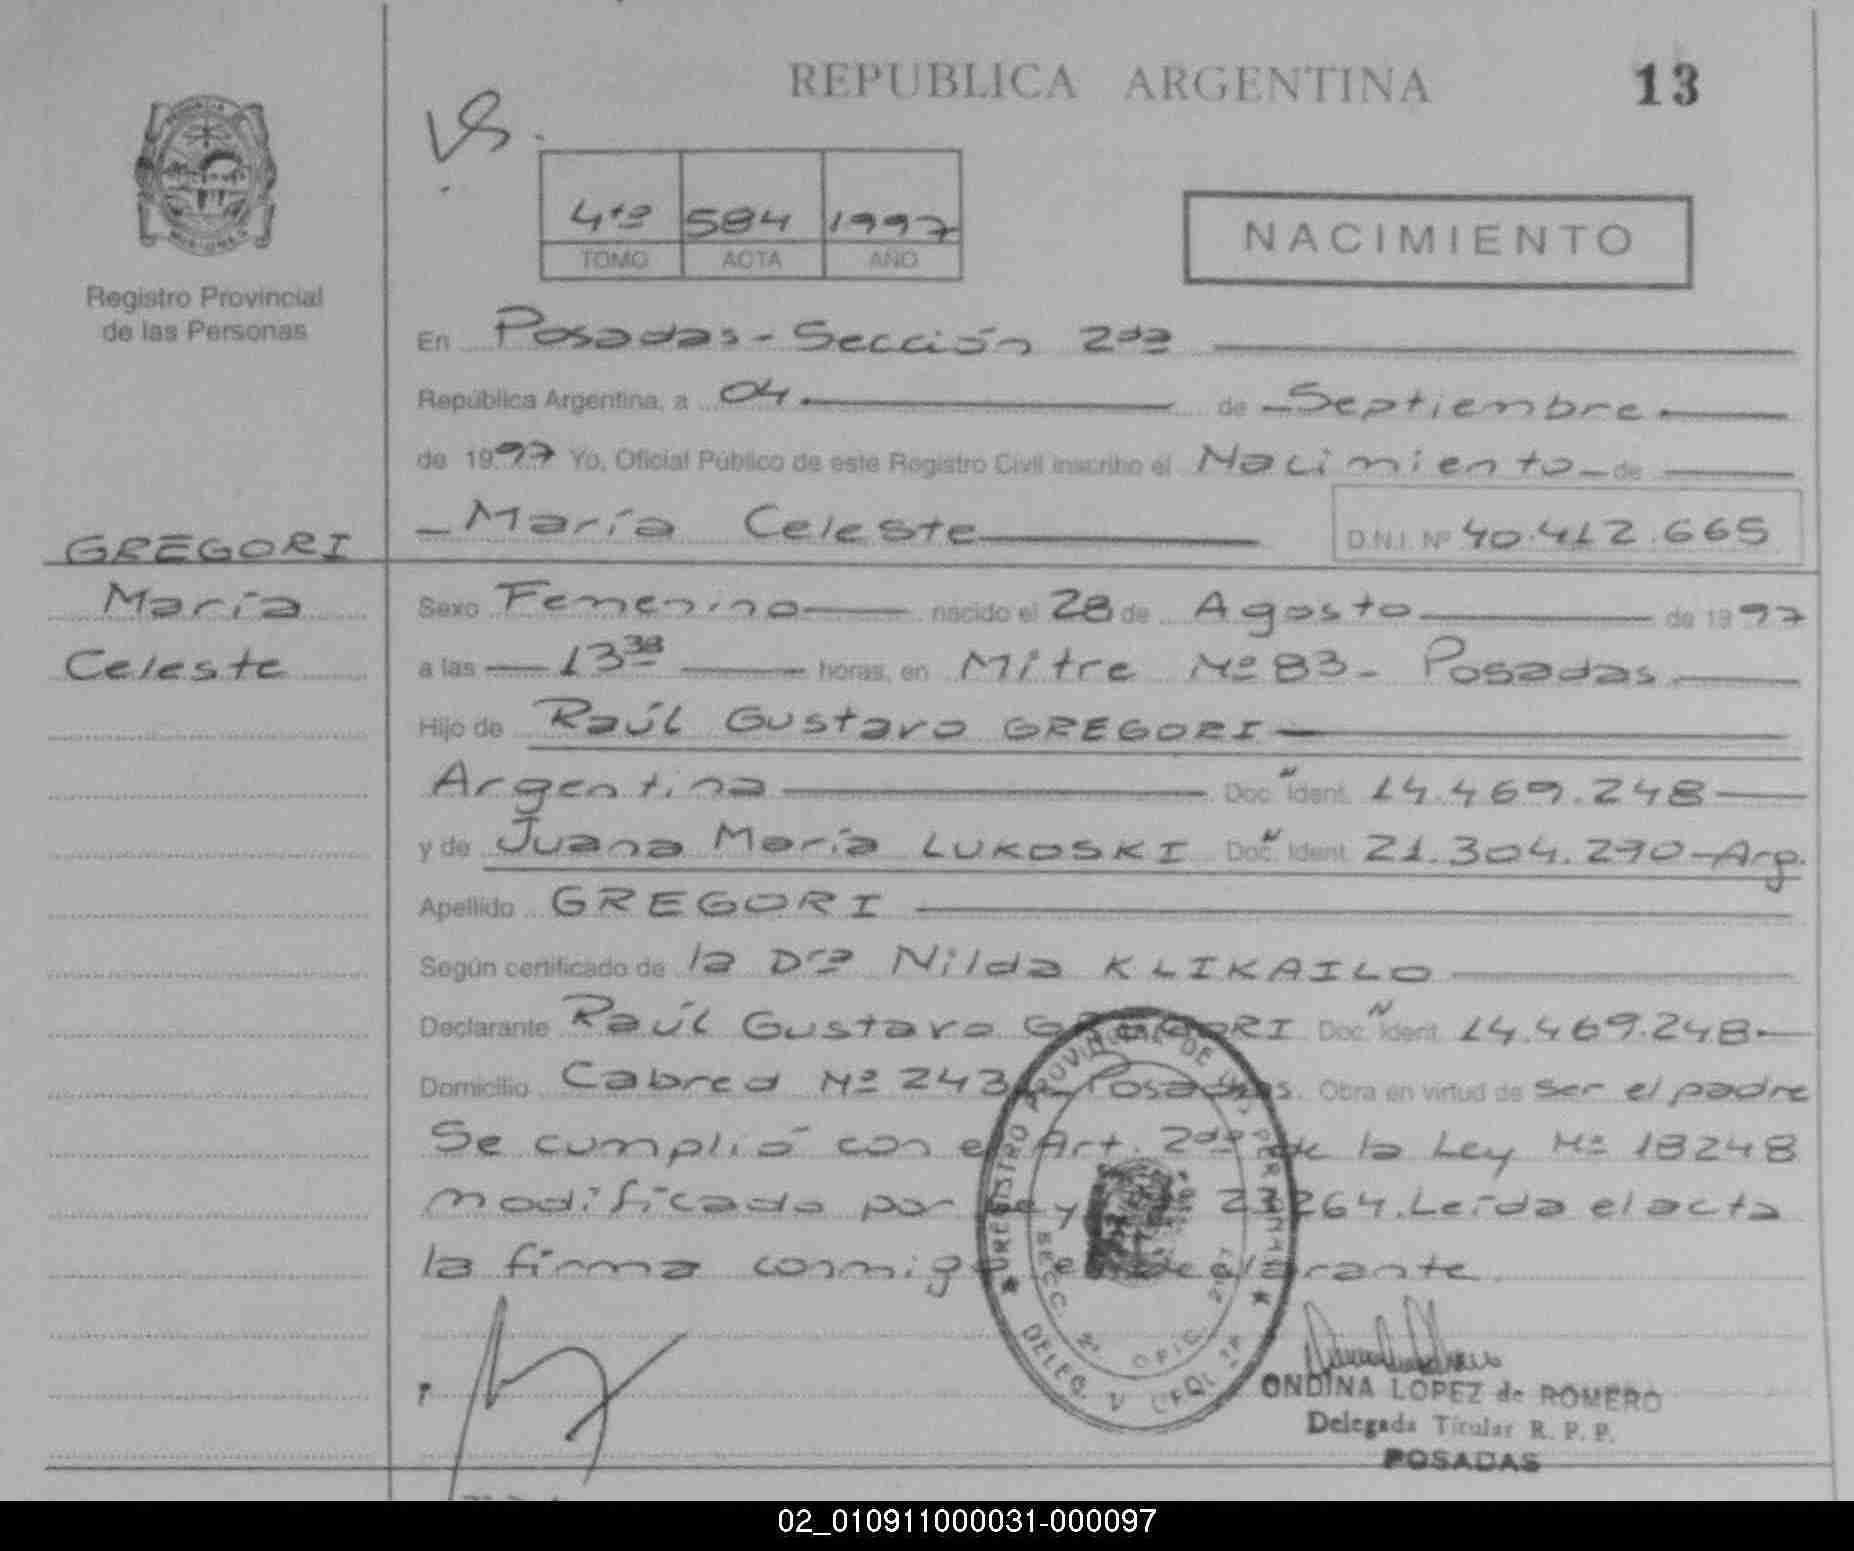 REPUBLICA ARGENTINA
13
4to 584 1997
TOMO ACTA AÑO
NACIMIENTO
Registro Provincial
de las Personas
En Posadas - Sección 2da
República Argentina, a 04 de Septiembre
de 1997 Yo, Oficial Público de este Registro Civil inscribo el Nacimiento de
María Celeste D.N.I. Nº 40.412.665
GREGORI
María
Celeste
Sexo Femenino nacido el 28 de Agosto de 1997
a las 13 horas, en Mitre Nº 83 - Posadas
Hijo de Raúl Gustavo GREGORI
Argentina Doc. Ident. 14.469.248
y de Juana María LUKOSKI Doc. Ident. 21.304.270 - Arg.
Apellido GREGORI
Según certificado de la Dra Nilda KLIKAILO
Declarante Raúl Gustavo GREGORI Doc. Ident. 14.469.248
Domicilio Cabred Nº Posadas. Obra en virtud de ser el padre
Se cumplió con el Art. 2do de la Ley Nº 18248
modificado por Ley 23264. Leída el acta
la firma conmigo el declarante
REGISTRO PROVINCIAL DE LAS PERSONAS
SECC. 2ª OFIC.
DELEG.
ONDINA LOPEZ de ROMERO
Delegada Titular R. P. P.
POSADAS
02_010911000031-000097